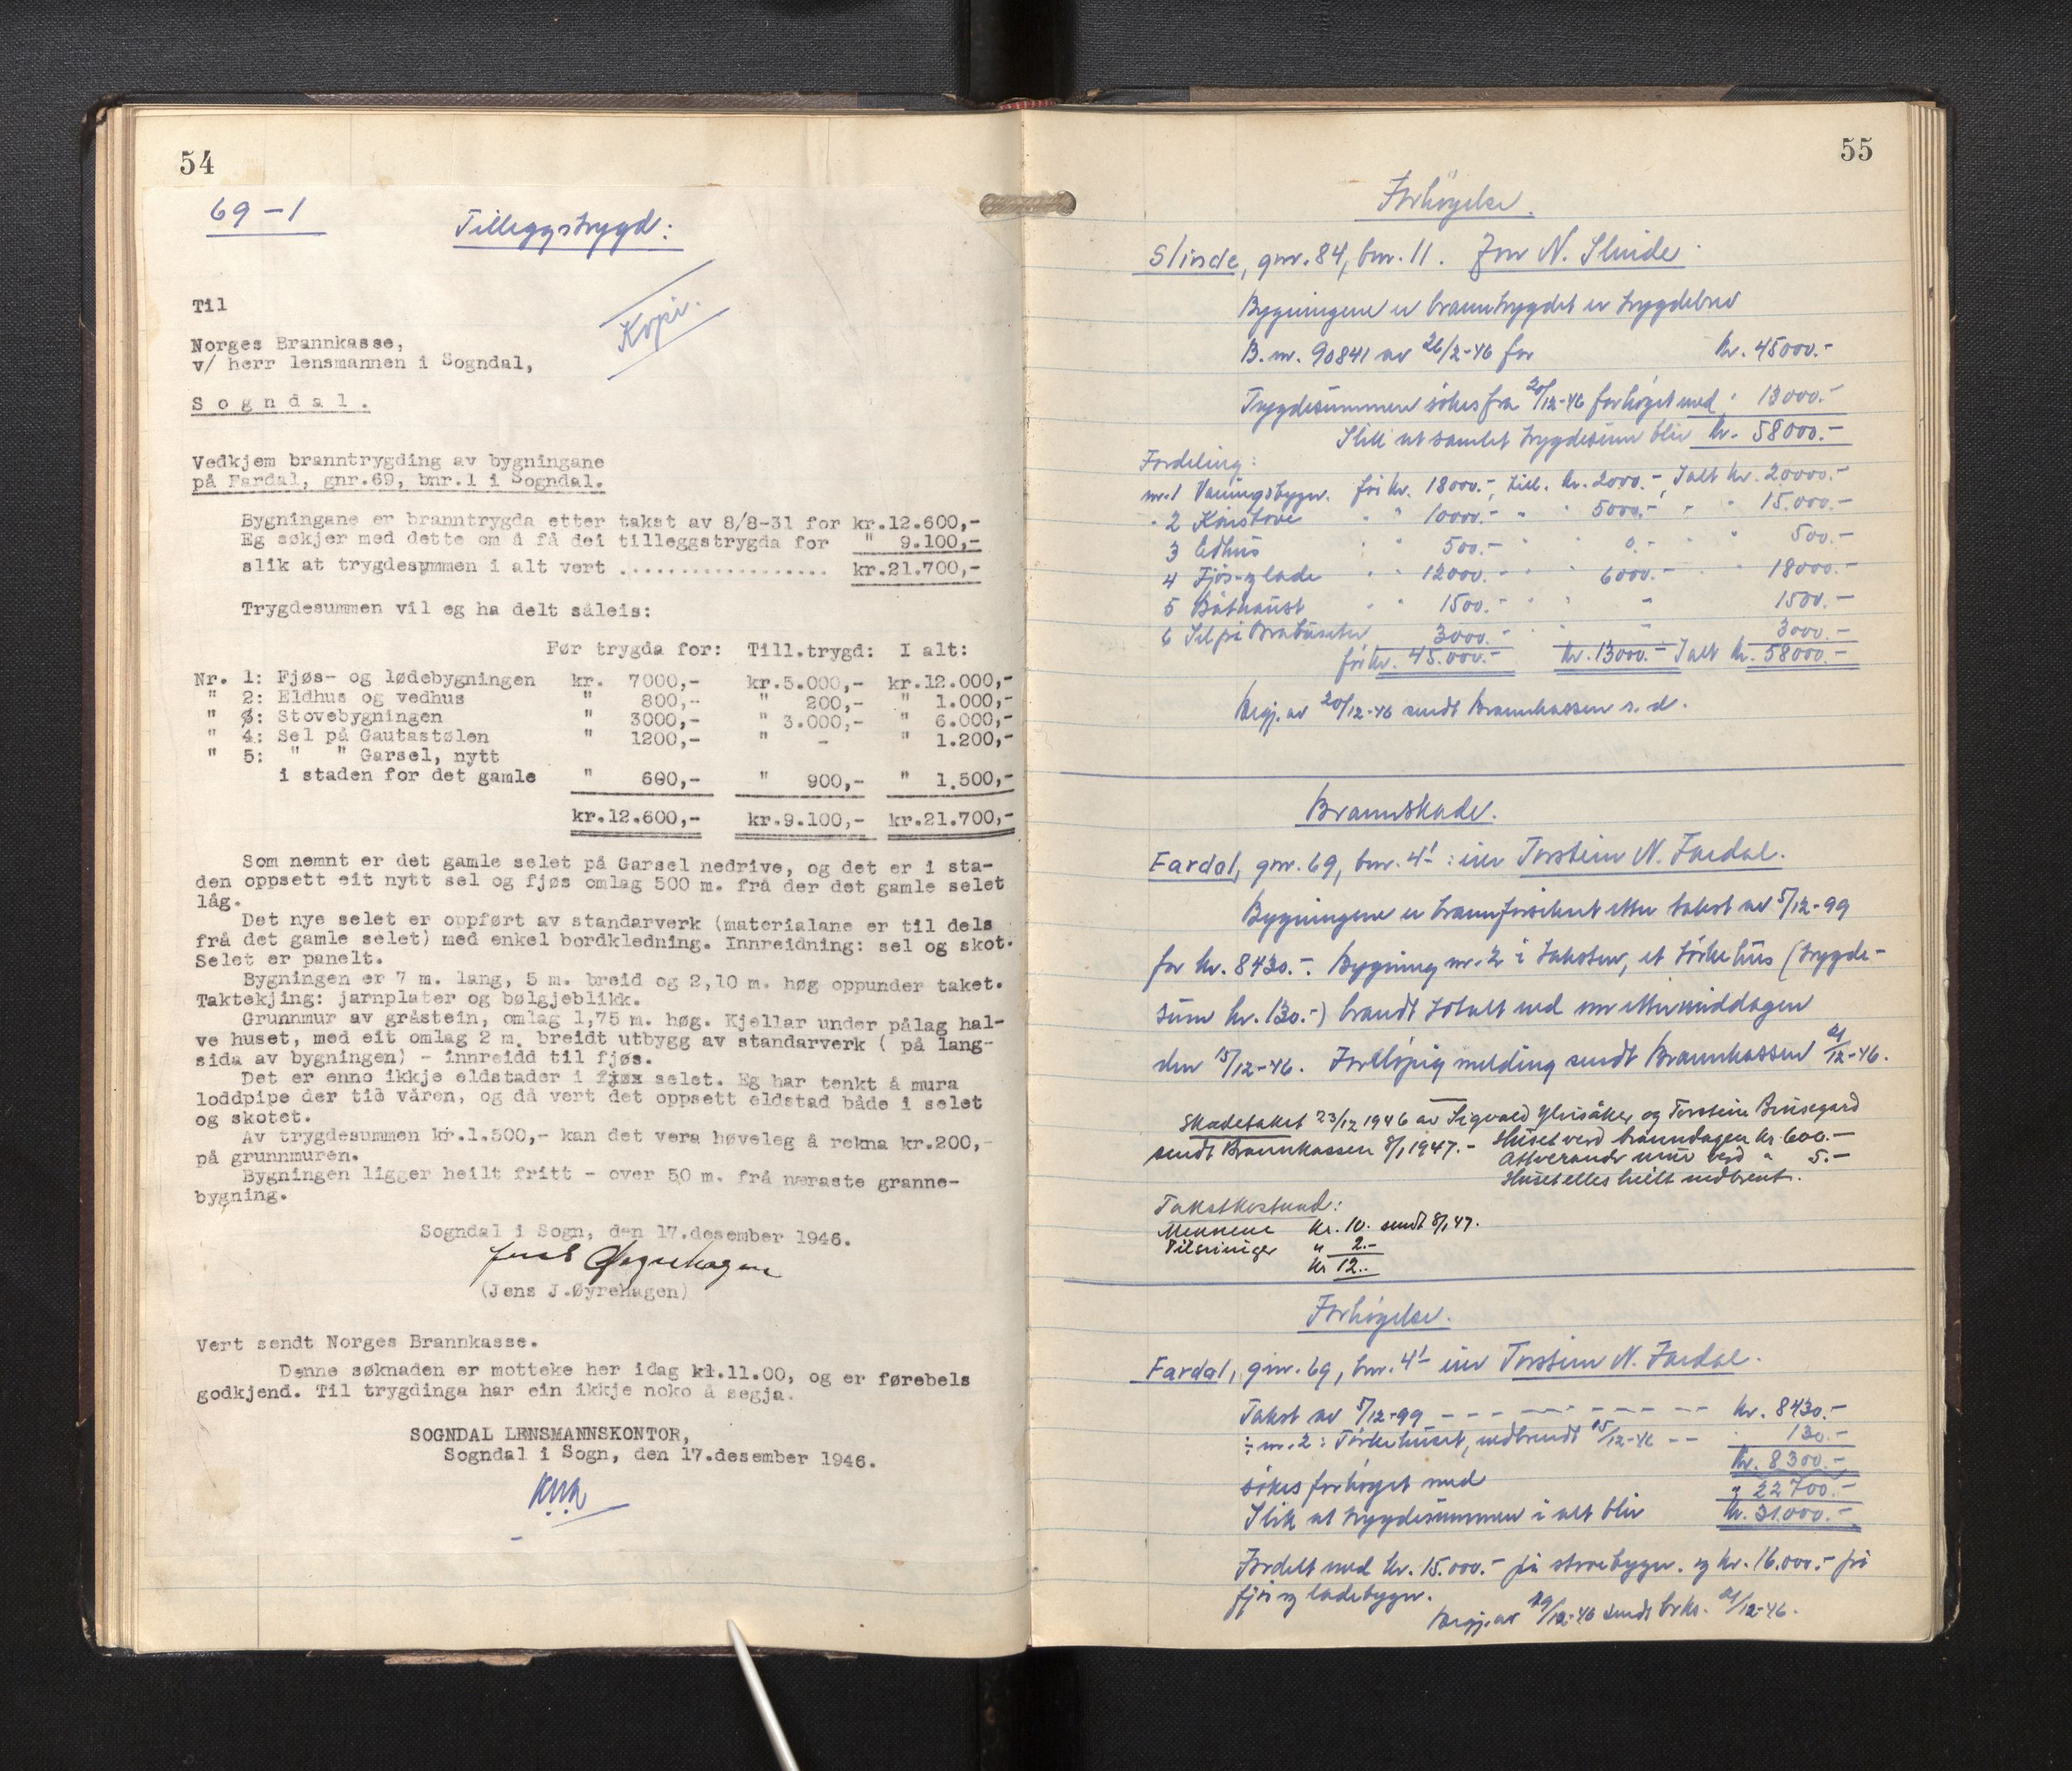 54
69-1
Tilleggstrygd:
Kopi.
Til
Norges Brannkasse,
v/ herr lensmannen i Sogndal,
Sogndal.
Vedkjem branntrygding av bygningane
på Fardal, gnr.69, bnr.1 i Sogndal.
Bygningane er branntrygda etter takst av 8/8-31 for kr.12.600,-
Eg søkjer med dette om å få dei tilleggstrygda for " 9.100,-
slik at trygdesummen i alt vert .................. kr.21.700,-
Trygdesummen vil eg ha delt såleis:
Før trygda for: Till.trygd: I alt:
Nr. 1: Fjøs- og lødebygningen kr. 7000,- kr.5.000,- kr.12.000,-
" 2: Eldhus og vedhus " 800,- " 200,- " 1.000,-
" 3: Stovebygningen " 3000,- " 3.000,- " 6.000,-
" 4: Sel på Gautastølen " 1200,- " - " 1.200,-
" 5: " " Garsel, nytt
i staden for det gamle " 600,- " 900,- " 1.500,-
kr.12.600,- kr.9.100,- kr.21.700,-
Som nemnt er det gamle selet på Garsel nedrive, og det er i sta-
den oppsett eit nytt sel og fjøs omlag 500 m. frå der det gamle selet
låg.
Det nye selet er oppført av standarverk (materialane er til dels
frå det gamle selet) med enkel bordkledning. Innreidning: sel og skot.
Selet er panelt.
Bygningen er 7 m. lang, 5 m. breid og 2,10 m. høg oppunder taket.
Taktekjing: jarnplater og bølgjeblikk.
Grunnmur av gråstein, omlag 1,75 m. høg. Kjellar under pålag hal-
ve huset, med eit omlag 2 m. breidt utbygg av standarverk ( på lang-
sida av bygningen) - innreidd til fjøs.
Det er enno ikkje eldstader i fjøx selet. Eg har tenkt å mura
loddpipe der tid våren, og då vert det oppsett eldstad både i selet
og skotet.
Av trygdesummen kr.1.500,- kan det vera høveleg å rekna kr.200,-
på grunnmuren.
Bygningen ligger heilt fritt - over 50 m. frå næraste granne-
bygning.
Sogndal i Sogn, den 17.desember 1946.
Jens Øyrehagen
(Jens J.Øyrehagen)
Vert sendt Norges Brannkasse.
Denne søknaden er motteke her idag kl.11.00, og er førebels
godkjend. Til trygdinga har ein ikkje noko å segja.
SOGNDAL LENSMANNSKONTOR,
Sogndal i Sogn, den 17.desember 1946.
55
Forhøyelse.
Slinde, gnr. 84, bnr. 11. Jon N. Slinde
Bygningene er branntrygdet er trygdebrev
B. nr. 90841 av 26/2-46 for kr. 45000.-
Trygdesummen søkes fra 20/12-46 forhøyet med " 13000.-
Slik at samlet trygdesum blir kr. 58000.-
Fordeling:
nr. 1 Våningsbygn. før kr. 18000.-, till. kr. 2000.-, Ialt kr. 20000.-
" 2 Kårstove " " 10000.- " " 5000.- " " 15.000.-
3 Eldhus " " 500.- " " 0.- " " 500.-
4 Fjøs- og lade " " 12000.- " " 6000.- " " 18000.-
5 Båtnaust " " 1500.- " " " 1500.-
6 Sel på 3000.- " " 3000.-
før kr. 45.000.- kr. 13000.- Ialt kr. 58000.-
Begj. av 20/12-46 sendt Brannkassen s. d.
Brannskade.
Fardal, gnr. 69, bnr. 4 : eier Torstein N. Fardal.
Bygningene er brannforsikret etter takst av 5/12-99
for kr. 8430.-. Bygning nr. 2 i taksten, et tørkehus (trygde-
sum kr. 130.-) brandt totalt ned om ettermiddagen
den 15/12-46. Foreløpig melding sendt Brannkassen 21/12-46.
Skadetakst 23/12 1946 av Sigvald Ylvisåker og Torstein
sendt Brannkassen 8/1 1947.- Huset verd branndagen kr. 600.-
Attverande mur verd " 5.-
Huset elles heilt nedbrent.
Takstkostnad:
Mennene kr. 10. sendt 8/1 47.
" 2.-
kr 12..
Forhøyelse.
Fardal, gnr. 69, bnr. 4 eier Torstein N. Fardal.
Takst av 5/12-99 - - - - - - - - - - kr. 8430.-
÷ nr. 2: Tørkehuset, nedbrendt 15/12-46 - - " 130.-
kr. 8300.-
søkes forhøyet med " 22700.-
Slik at trygdesummen i alt blir kr. 31000.-
Fordelt med kr. 15.000.- på stovebygn. og kr. 16.000.- på
fjøs og ladebygn.
Begj. av 29/12-46 sendt brks. 21/12-46.